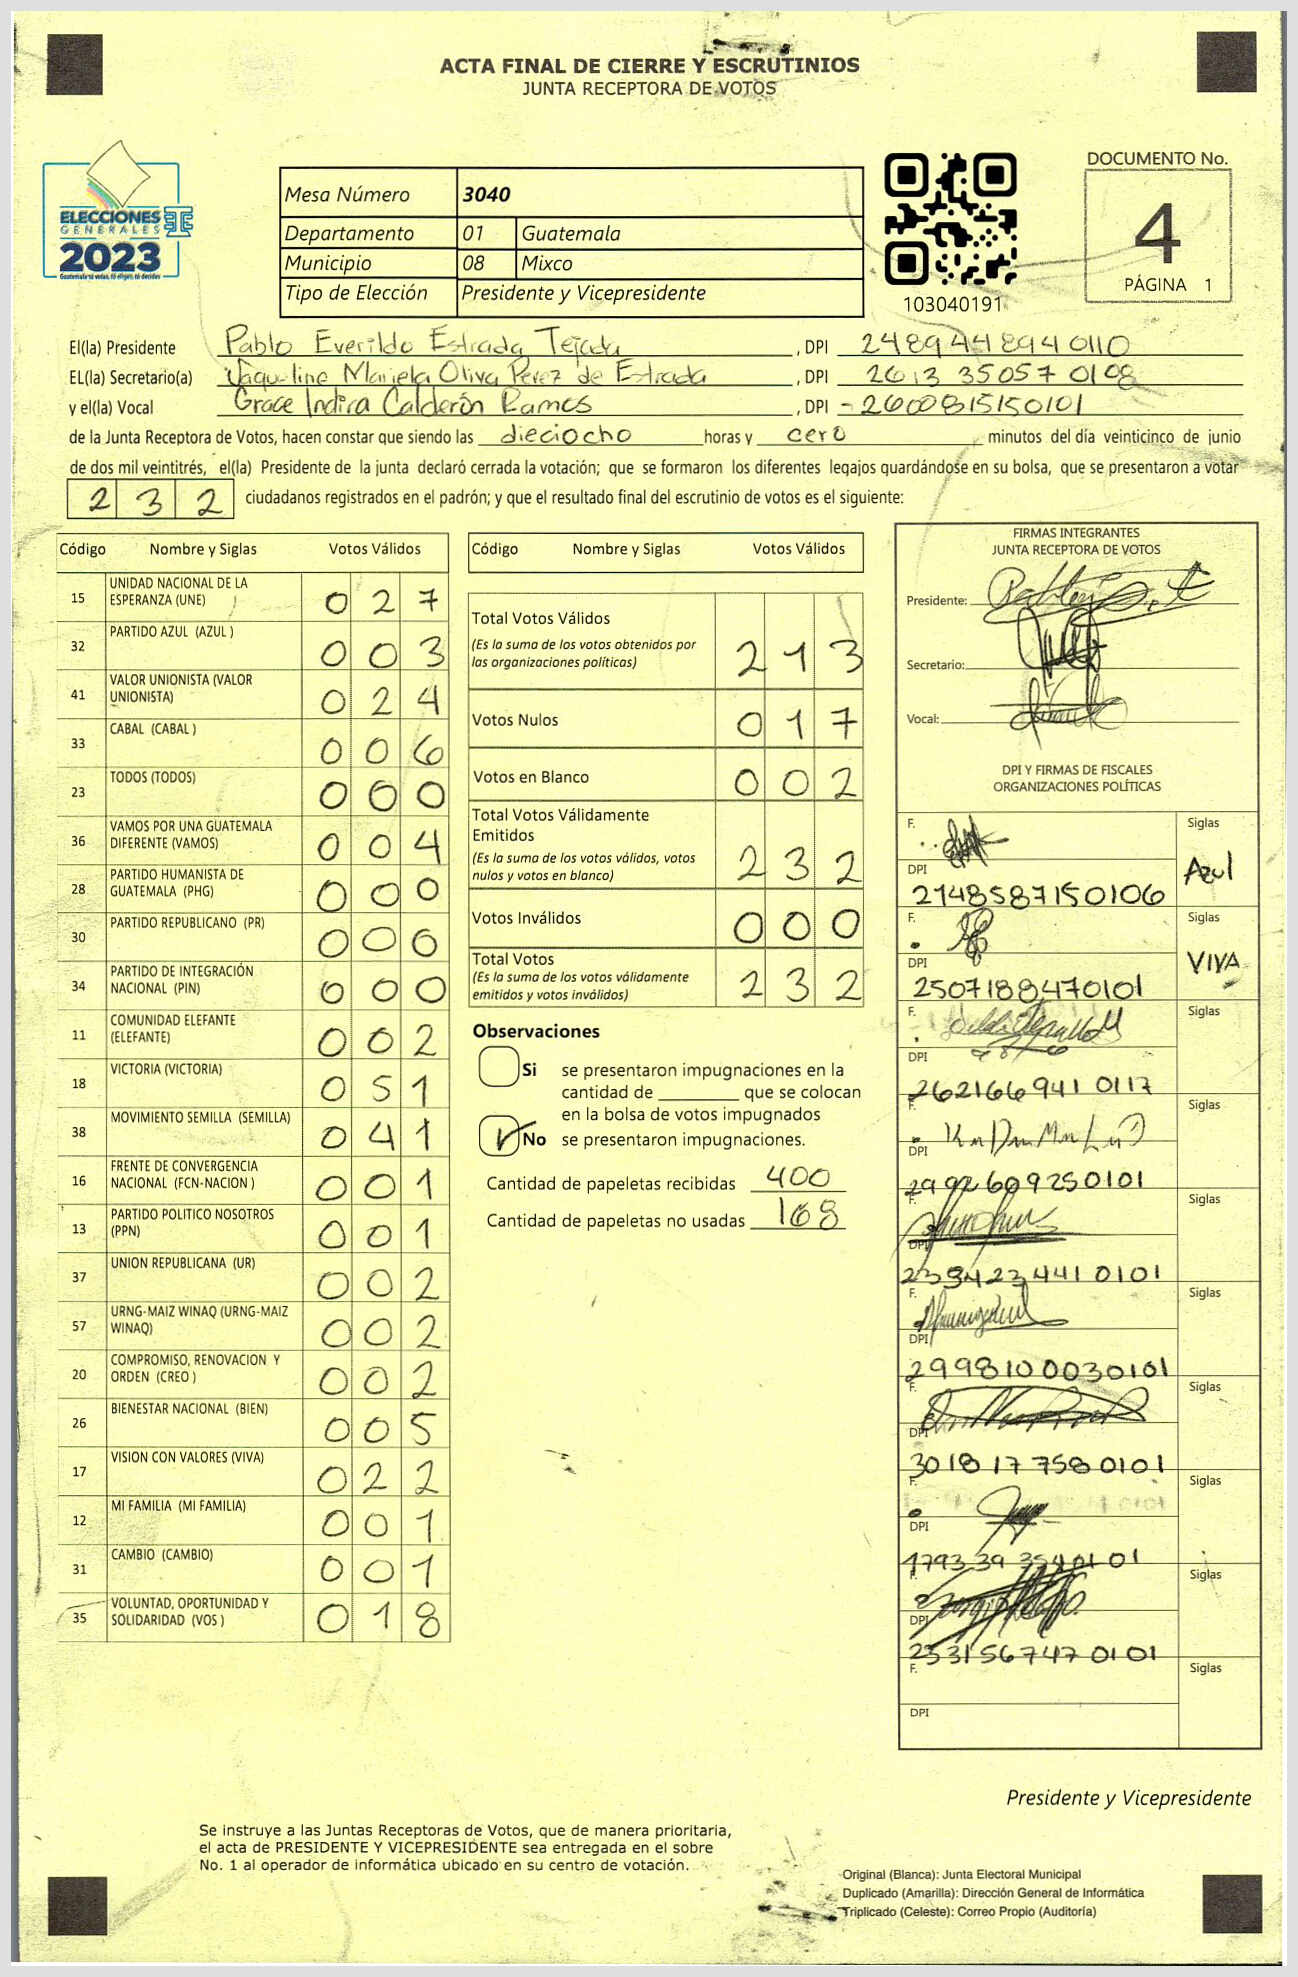 ACTA FINAL DE CIERRE Y ESCRUTINIOS
JUNTA RECEPTORA DE VOTOS
ELECCIONES
GENERALES
2023
Guatemala tú votas, tú eliges, tú decides
Mesa Número 3040
Departamento 01 Guatemala
Municipio 08 Mixco
Tipo de Elección Presidente y Vicepresidente
103040191
DOCUMENTO No.
4
PÁGINA 1
El(la) Presidente Pablo Everildo Estrada Tejada , DPI 2489448940110
EL(la) Secretario(a) Jaqueline Mariela Oliva Perez de Estrada , DPI 2613 35057 0108
y el(la) Vocal Grace Indira Calderón Ramos , DPI - 2600815150101
de la Junta Receptora de Votos, hacen constar que siendo las dieciocho horas y cero minutos del día veinticinco de junio
de dos mil veintitrés, el(la) Presidente de la junta declaró cerrada la votación; que se formaron los diferentes legajos guardándose en su bolsa, que se presentaron a votar
232 ciudadanos registrados en el padrón; y que el resultado final del escrutinio de votos es el siguiente:
Código Nombre y Siglas Votos Válidos
15 UNIDAD NACIONAL DE LA ESPERANZA (UNE) 027
32 PARTIDO AZUL (AZUL ) 003
41 VALOR UNIONISTA (VALOR UNIONISTA) 024
33 CABAL (CABAL ) 006
23 TODOS (TODOS) 000
36 VAMOS POR UNA GUATEMALA DIFERENTE (VAMOS) 004
28 PARTIDO HUMANISTA DE GUATEMALA (PHG) 000
30 PARTIDO REPUBLICANO (PR) 000
34 PARTIDO DE INTEGRACIÓN NACIONAL (PIN) 000
11 COMUNIDAD ELEFANTE (ELEFANTE) 002
18 VICTORIA (VICTORIA) 051
38 MOVIMIENTO SEMILLA (SEMILLA) 041
16 FRENTE DE CONVERGENCIA NACIONAL (FCN-NACION ) 001
13 PARTIDO POLITICO NOSOTROS (PPN) 001
37 UNION REPUBLICANA (UR) 002
57 URNG-MAIZ WINAQ (URNG-MAIZ WINAQ) 002
20 COMPROMISO, RENOVACION Y ORDEN (CREO ) 002
26 BIENESTAR NACIONAL (BIEN) 005
17 VISION CON VALORES (VIVA) 022
12 MI FAMILIA (MI FAMILIA) 001
31 CAMBIO (CAMBIO) 001
35 VOLUNTAD, OPORTUNIDAD Y SOLIDARIDAD (VOS ) 018
Código Nombre y Siglas Votos Válidos
Total Votos Válidos
(Es la suma de los votos obtenidos por las organizaciones políticas) 213
Votos Nulos 017
Votos en Blanco 002
Total Votos Válidamente Emitidos
(Es la suma de los votos válidos, votos nulos y votos en blanco) 232
Votos Inválidos 000
Total Votos
(Es la suma de los votos válidamente emitidos y votos inválidos) 232
Observaciones
Si se presentaron impugnaciones en la
cantidad de ________ que se colocan
en la bolsa de votos impugnados
No se presentaron impugnaciones.
Cantidad de papeletas recibidas 400
Cantidad de papeletas no usadas 168
FIRMAS INTEGRANTES
JUNTA RECEPTORA DE VOTOS
Presidente:
Secretario:
Vocal:
DPI Y FIRMAS DE FISCALES
ORGANIZACIONES POLÍTICAS
F. Siglas Azul
DPI 2148587150106
F. Siglas VIVA
DPI 2507188470101
F. Siglas
DPI 262166941 0117
F. Siglas
DPI 2992609250101
F. Siglas
DPI 239423441 0101
F. Siglas
DPI 2998100030101
F. Siglas
DPI 3018177580101
F. Siglas
DPI
F. Siglas
DPI 2531567470101
F. Siglas
DPI
Presidente y Vicepresidente
Se instruye a las Juntas Receptoras de Votos, que de manera prioritaria,
el acta de PRESIDENTE Y VICEPRESIDENTE sea entregada en el sobre
No. 1 al operador de informática ubicado en su centro de votación.
Original (Blanca): Junta Electoral Municipal
Duplicado (Amarilla): Dirección General de Informática
Triplicado (Celeste): Correo Propio (Auditoría)